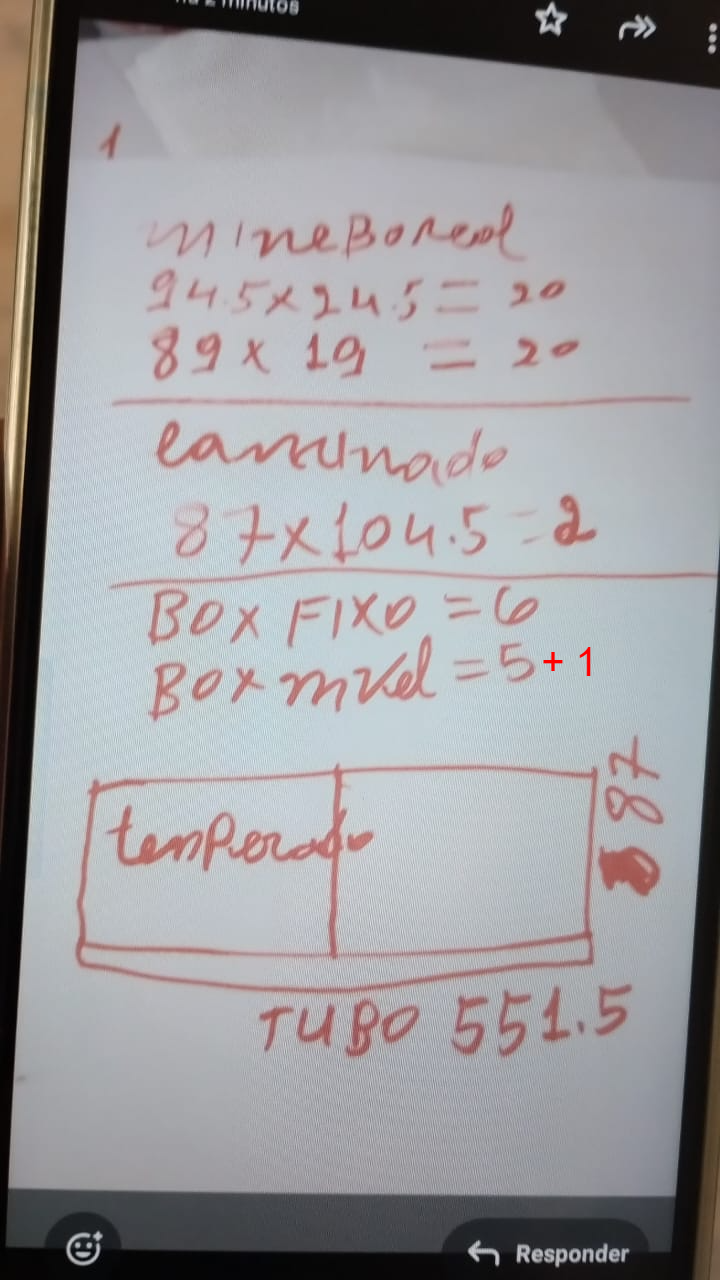 há 2 minutos
1
mineBoreal
94.5x24.5 = 20
89 x 19 = 20
Laminado
87x104.5 = 2
BOX FIXO = 6
BOX mvel = 5 + 1
temperado
87
TUBO 551.5
Responder